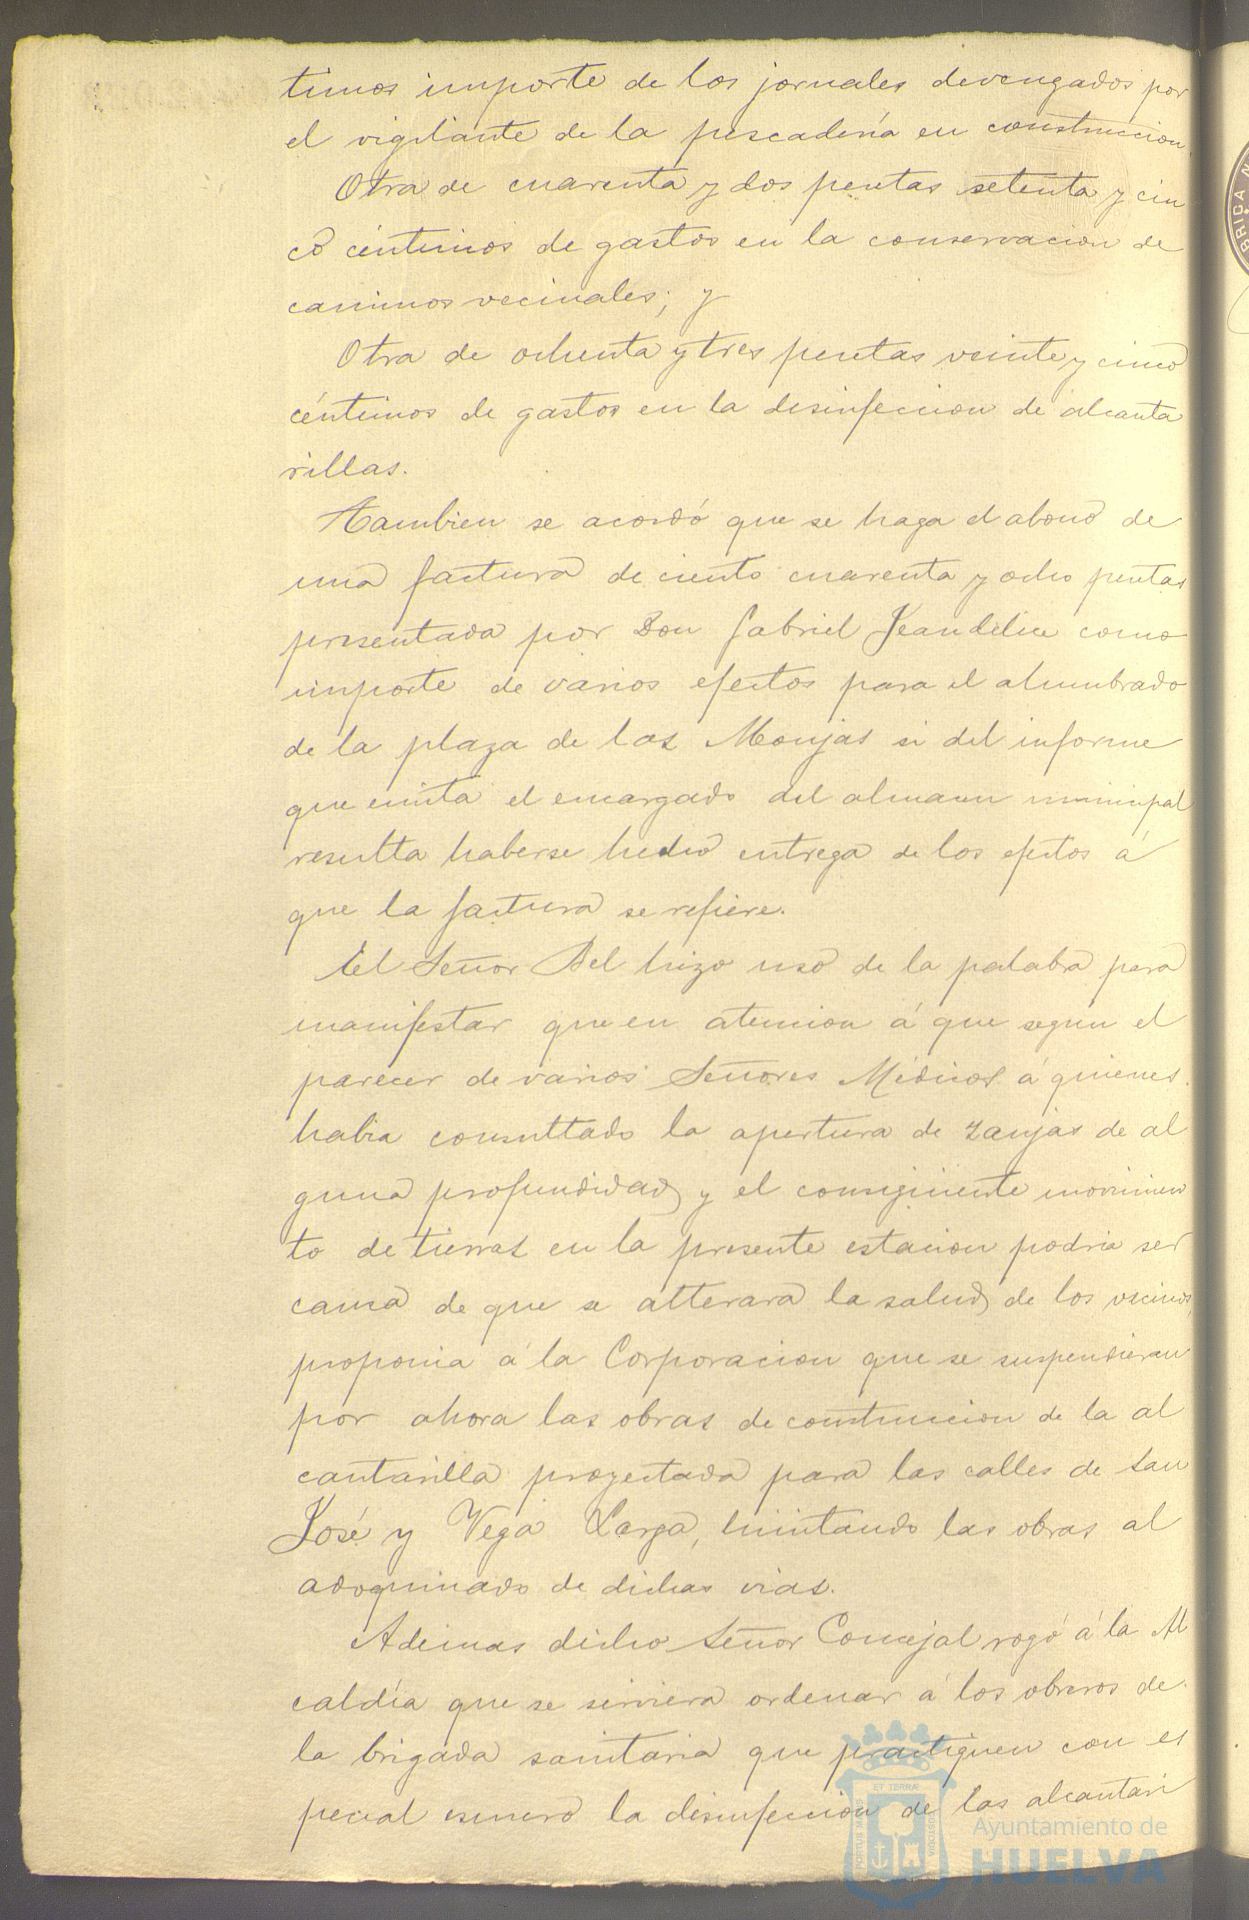 timos importe de los jornales devengados por
el vigilante de la pescadería en construccion.
Otra de cuarenta y dos pesetas setenta y cin
co céntimos de gastos en la conservacion de
caminos vecinales; y
Otra de ochenta y tres pesetas veinte y cinco
céntimos de gastos en la desinfeccion de alcanta
rillas.
Tambien se acordó que se haga el abono de
una factura de ciento cuarenta y ocho pesetas
presentada por Don Gabriel Jeandelice como
importe de varios efectos para el alumbrado
de la plaza de las Monjas si del informe
que emita el encargado del almacen municipal
resulta haberse hecho entrega de los efectos á
que la factura se refiere.
El Señor Bel hizo uso de la palabra para
manifestar que en atencion á que segun el
parecer de varios Señores Médicos á quienes
habia consultado la apertura de zanjas de al
guna profundidad y el consiguiente movimien
to de tierras en la presente estacion podria ser
causa de que se alterara la salud de los vecinos,
proponia á la Corporacion que se suspendieran
por ahora las obras de construccion de la al
cantarilla proyectada para las calles de San
José y Vega Larga, limitando las obras al
adoquinado de dichas vias.
Ademas dicho Señor Concejal rogó á la Al
caldía que se sirviera ordenar á los obreros de
la brigada sanitaria que practiquen con es
pecial esmero la desinfeccion de las alcantari
ET TERRÆ
PORTUS MARIS
CUSTODIA
Ayuntamiento de
HUELVA
BRICA N